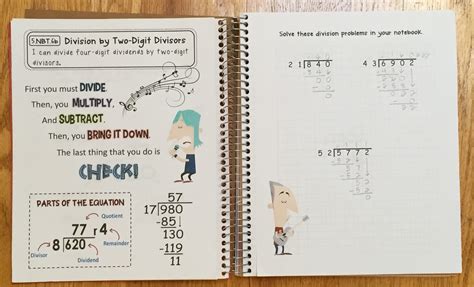 5.NBT.6b
Division by Two-Digit Divisors
I can divide four-digit dividends by two-digit
divisors.
First you must DIVIDE.
Then, you MULTIPLY.
And SUBTRACT.
Then, you BRING IT DOWN.
The last thing that you do is
CHECK!
PARTS OF THE EQUATION
Quotient
77 r4
8 620
Divisor
Dividend
Remainder
57
17 980
-85
130
-119
11
Solve these division problems in your notebook.
21 840
43 6902
52 5772